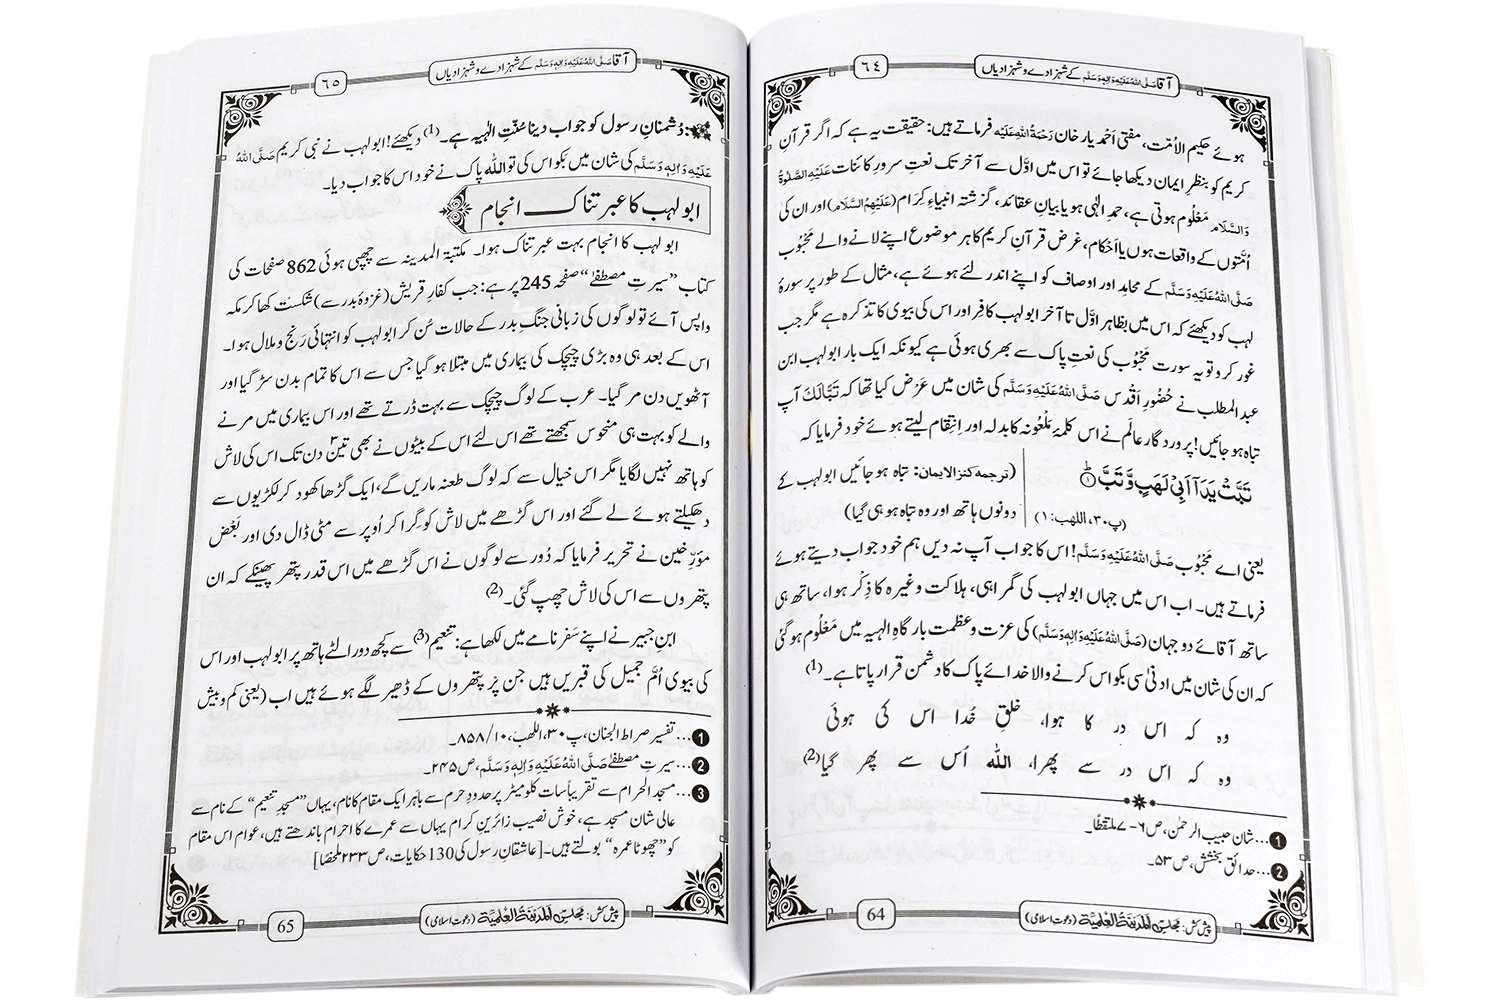 آقا صَلَّی اللہُ عَلَیْہِ وَاٰلِہٖ وَسَلَّم کے شہزادے و شہزادیاں
٦٤
ہوئے حکیم الاُمّت، مفتی احمد یار خان رَحْمَۃُ اللہِ عَلَیْہ فرماتے ہیں: حقیقت یہ ہے کہ اگر قرآنِ
کریم کو بنظرِ ایمان دیکھا جائے تو اس میں اوّل سے آخر تک نعتِ سرورِ کائنات عَلَیْہِ الصَّلٰوۃُ
وَالسَّلَام مَعْلُوم ہوتی ہے، حمدِ الٰہی ہو یا بیانِ عقائد، گزشتہ انبیاءِ کِرَام (عَلَیْہِمُ السَّلَام) اور ان کی
اُمّتوں کے واقعات ہوں یا اَحْکام، غرض قرآنِ کریم کا ہر موضوع اپنے لانے والے مَحْبُوب
صَلَّی اللہُ عَلَیْہِ وَسَلَّم کے محامد اور اوصاف کو اپنے اندر لئے ہوئے ہے، مثال کے طور پر سورۂ
لہب کو دیکھئے کہ اس میں بظاہر اوّل تا آخر ابولہب کافِر اور اس کی بیوی کا تذکرہ ہے مگر جب
غور کرو تو یہ سورت مَحْبُوب کی نعتِ پاک سے بھری ہوئی ہے کیونکہ ایک بار ابولہب ابن
عبد المطلب نے حُضُورِ اَقْدس صَلَّی اللہُ عَلَیْہِ وَسَلَّم کی شان میں عرْض کیا تھا کہ تَبًّا لَکَ آپ
تباہ ہو جائیں! پروردگارِ عالَم نے اس کلمۂ مَلْعُونہ کا بدلہ اور اِنتِقام لیتے ہوئے خود فرمایا کہ
تَبَّتْ یَدَاۤ اَبِیْ لَهَبٍ وَّ تَبَّؕ(۱)
(ترجمہ کنز الایمان: تباہ ہو جائیں ابولہب کے
(پ۳۰، اللھب: ۱)
دونوں ہاتھ اور وہ تباہ ہو ہی گیا)
یعنی اے مَحْبُوب صَلَّی اللہُ عَلَیْہِ وَسَلَّم! اس کا جواب آپ نہ دیں ہم خود جواب دیتے ہوئے
فرماتے ہیں۔ اب اس میں جہاں ابولہب کی گمراہی، ہلاکت وغیرہ کا ذِکْر ہوا، ساتھ ہی
ساتھ آقائے دو جہان (صَلَّی اللہُ عَلَیْہِ وَاٰلِہٖ وَسَلَّم) کی عزت و عظمت بارگاہِ الٰہیہ میں مَعْلُوم ہوگئی
کہ ان کی شان میں ادنیٰ سی بکواس کرنے والا خدائے پاک کا دشمن قرار پاتا ہے۔ (1)
وہ کہ اس در کا ہوا، خلقِ خُدا اس کی ہوئی
وہ کہ اس در سے پھرا، اللہ اُس سے پھر گیا (2)
1 ... شان حبیب الرحمٰن، ص۶-۷ ملتقطاً۔
2 ... حدائقِ بخشش، ص۵۳۔
پیش کش: مجلس المدینۃ العلمیۃ (دعوتِ اسلامی)
64
آقا صَلَّی اللہُ عَلَیْہِ وَاٰلِہٖ وَسَلَّم کے شہزادے و شہزادیاں
٦٥
دُشمنانِ رسول کو جواب دینا سُنّتِ الٰہیہ ہے۔ (1) دیکھئے! ابولہب نے نبی کریم صَلَّی اللہُ
عَلَیْہِ وَاٰلِہٖ وَسَلَّم کی شان میں بکواس کی تو اللہ پاک نے خود اس کا جواب دیا۔
ابولہب کا عبرتناک انجام
ابولہب کا انجام بہت عبرتناک ہوا۔ مکتبۃ المدینہ سے چھپی ہوئی 862 صفحات کی
کتاب ”سیرتِ مصطفےٰ“ صفحہ 245 پر ہے: جب کفارِ قریش (غزوۂ بدر سے) شکست کھا کر مکہ
واپس آئے تو لوگوں کی زبانی جنگِ بدر کے حالات سُن کر ابولہب کو انتہائی رَنج و ملال ہوا۔
اس کے بعد ہی وہ بڑی چیچک کی بیماری میں مبتلا ہو گیا جس سے اس کا تمام بدن سڑ گیا اور
آٹھویں دن مر گیا۔ عرب کے لوگ چیچک سے بہت ڈرتے تھے اور اس بیماری میں مرنے
والے کو بہت ہی منْحوس سمجھتے تھے اس لئے اس کے بیٹوں نے بھی تین۳ دن تک اس کی لاش
کو ہاتھ نہیں لگایا مگر اس خیال سے کہ لوگ طعنہ ماریں گے، ایک گڑھا کھود کر لکڑیوں سے
دھکیلتے ہوئے لے گئے اور اس گڑھے میں لاش کو گرا کر اُوپر سے مٹی ڈال دی اور بَعْض
مؤرِّخین نے تحریر فرمایا کہ دُور سے لوگوں نے اس گڑھے میں اس قدر پتھر پھینکے کہ ان
پتھروں سے اس کی لاش چھپ گئی۔ (2)
ابن جبیر نے اپنے سَفَر نامے میں لکھا ہے: تنعیم (3) سے کچھ دور الٹے ہاتھ پر ابولہب اور اس
کی بیوی اُمّ جمیل کی قبریں ہیں جن پر پتھروں کے ڈھیر لگے ہوئے ہیں اب (یعنی کم و بیش
1 ... تفسیر صراط الجنان، پ۳۰، اللھب، ۱۰/۸۵۸۔
2 ... سیرتِ مصطفےٰ صَلَّی اللہُ عَلَیْہِ وَاٰلِہٖ وَسَلَّم، ص۲۴۵۔
3 ... مسجد الحرام سے تقریباً سات کلومیٹر پر حدودِ حرم سے باہَر ایک مقام کا نام، یہاں ”مسجدِ تنعیم“ کے نام سے
عالی شان مسجد ہے، خوش نصیب زائرینِ کرام یہاں سے عمرے کا احرام باندھتے ہیں، عوام اس مقام
کو ”چھوٹا عمرہ“ بولتے ہیں۔ [عاشقانِ رسول کی 130 حکایات، ص۲۳۳ ملخصًا]
پیش کش: مجلس المدینۃ العلمیۃ (دعوتِ اسلامی)
65